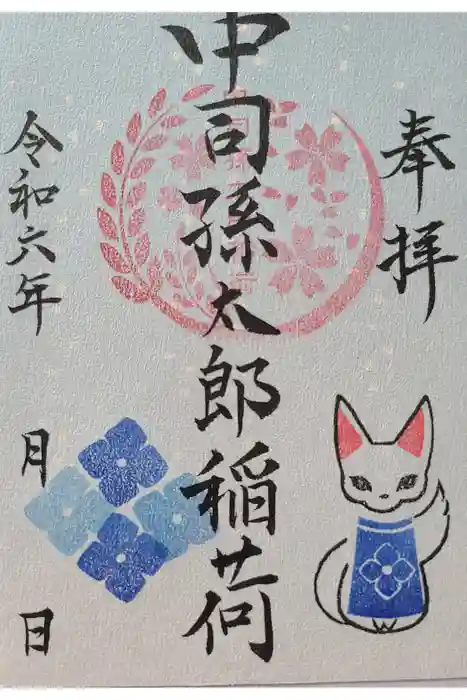 奉拝
中司孫太郎稲荷
令和六年 月 日